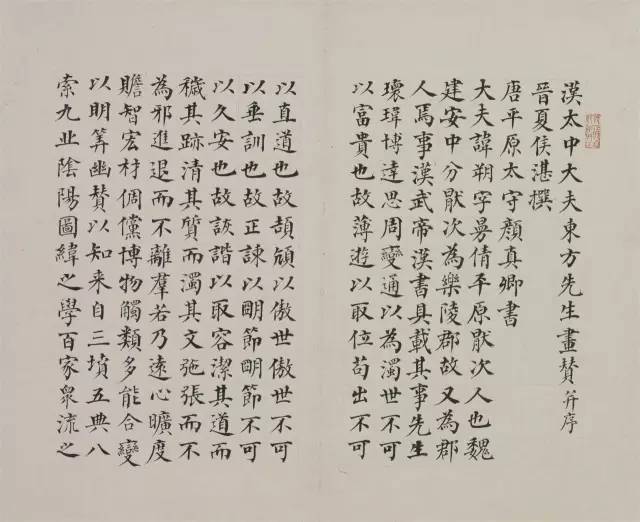 漢太中大夫東方先生畫贊并序
晉夏侯湛撰
唐平原太守顏真卿書
大夫諱朔字曼倩平原猒次人也魏
建安中分猒次為樂陵郡故又為郡
人焉事漢武帝漢書具載其事先生
瓌瑋博達思周變通以為濁世不可
以富貴也故薄遊以取位苟出不可
以直道也故頡頏以傲世傲世不可
以垂訓也故正諫以明節明節不可
以久安也故詼諧以取容潔其道而
穢其跡清其質而濁其文弛張而不
為邪進退而不離羣若乃遠心曠度
贍智宏材倜儻博物觸類多能合變
以明筭幽贊以知来自三墳五典八
索九丘陰陽圖緯之學百家衆流之